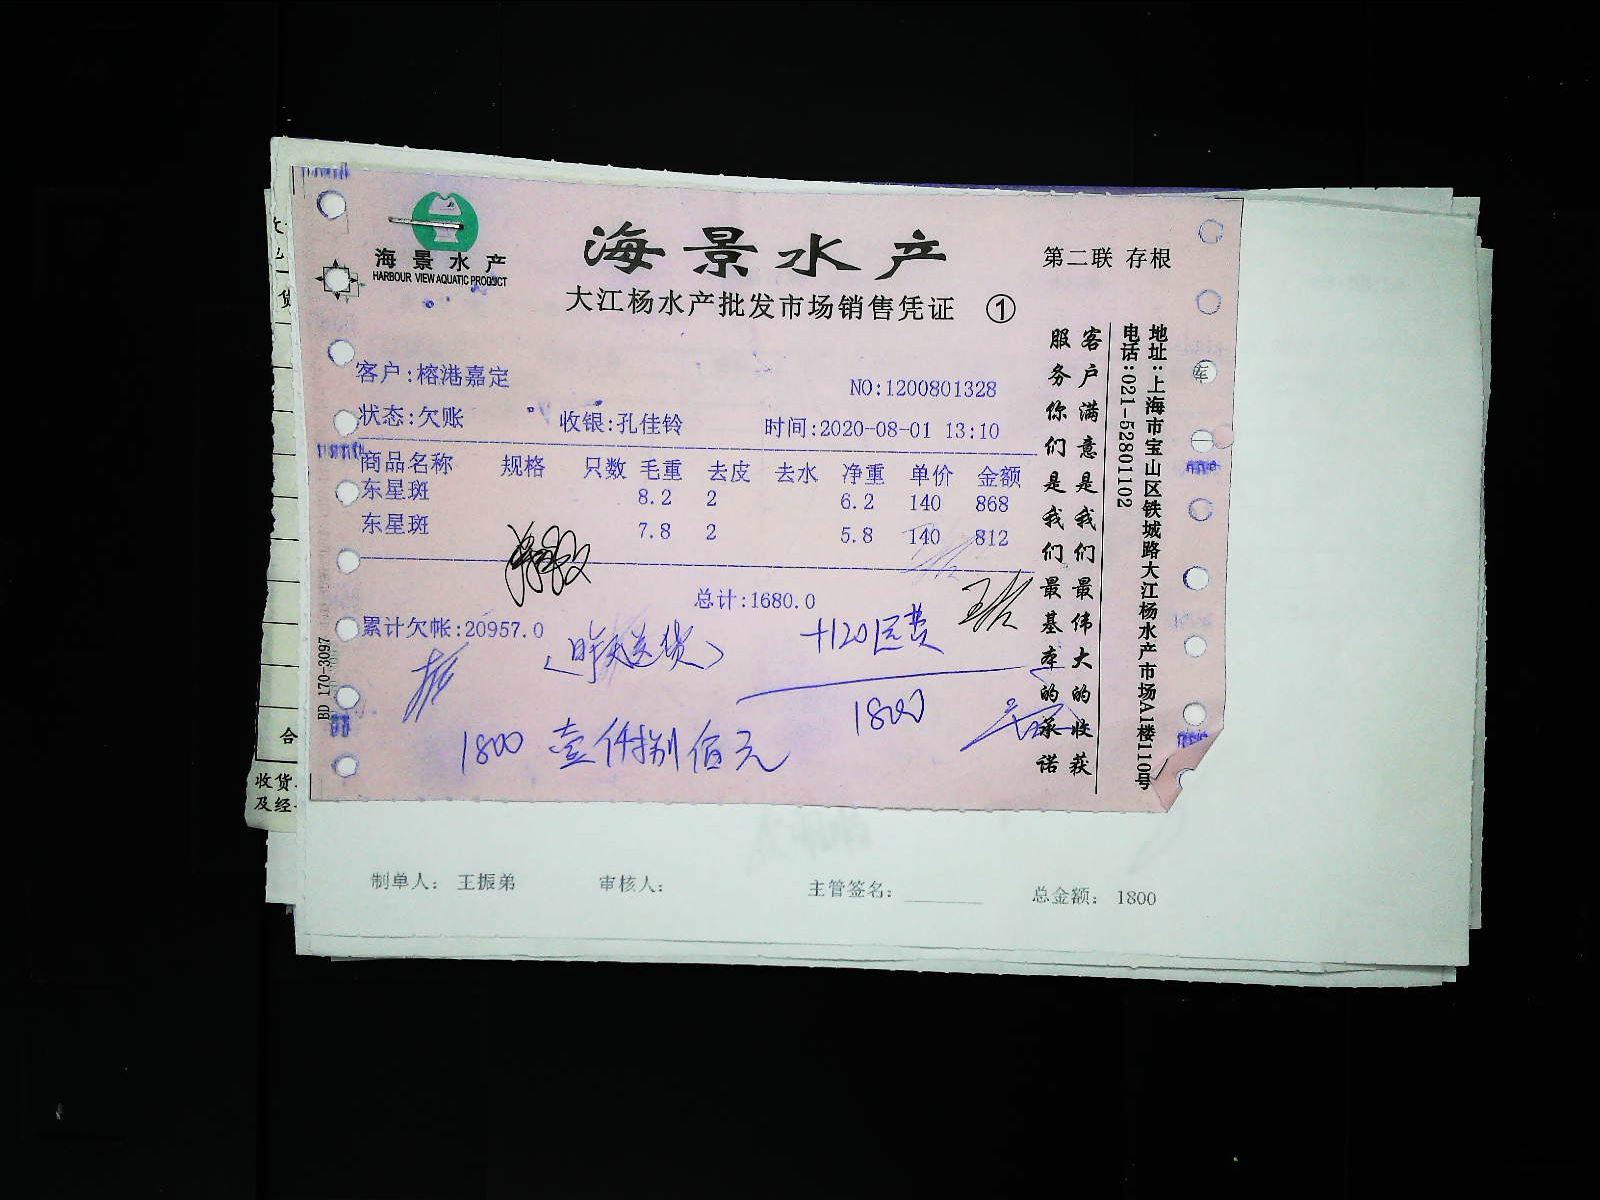 海景水产
HARBOUR VIEW AQUATIC PRODUCT
海景水产
第二联 存根
大江杨水产批发市场销售凭证 ①
客户:榕港嘉定
NO:1200801328
状态:欠账 收银:孔佳铃 时间:2020-08-01 13:10
商品名称 规格 只数 毛重 去皮 去水 净重 单价 金额
东星斑 8.2 2 6.2 140 868
东星斑 7.8 2 5.8 140 812
总计:1680.0
累计欠帐:20957.0
(昨天送货)
+120运费
1800
1800 壹仟捌佰元
客户满意是我们最伟大的收获
服务你们是我们最基本的承诺
地址:上海市宝山区铁城路大江杨水产市场A1楼110号
电话:021-52801102
BD 170-3097
货
合
收货
及经
制单人: 王振弟 审核人: 主管签名: 总金额: 1800